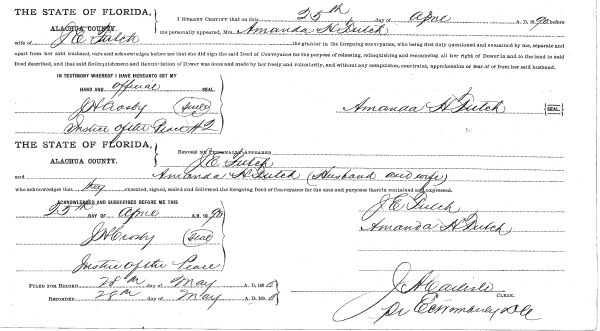 THE STATE OF FLORIDA,
ALACHUA COUNTY.
I HEREBY CERTIFY that on this 25th day of A. D. 1890 before
me personally appeared, Mrs. Amanda H. Futch
wife of J. E. Futch the grantor in the foregoing conveyance, who being first duly questioned and examined by me, separate and
apart from her said husband, says and acknowledges before me that she did sign the said Deed of Conveyance for the purpose of releasing, relinquishing and renouncing all her right of Dower in and to the land in said
Deed described, and that said Relinquishment and Renunciation of Dower was done and made by her freely and voluntarily, and without any compulsion, constraint, apprehension or fear of or from her said husband.
IN TESTIMONY WHEREOF I HAVE HEREUNTO SET MY
HAND AND official SEAL.
J. H. Crosby (Seal) Amanda H Futch SEAL.
Justice of the Peace
THE STATE OF FLORIDA,
ALACHUA COUNTY.
BEFORE ME PERSONALLY APPEARED
J. E. Futch
and Amanda H. Futch (Husband and wife)
who acknowledges that they executed, signed, sealed and delivered the foregoing Deed of Conveyance for the uses and purposes therein contained and expressed.
ACKNOWLEDGED AND SUBSCRIBED BEFORE ME THIS
25th DAY OF A. D. 1890
J E Futch
J. H. Crosby (Seal) Amanda H Futch
Justice of the Peace
FILED FOR RECORD 28th day of May A. D. 1890
RECORDED 28th day of May A. D. 1890
CLERK.